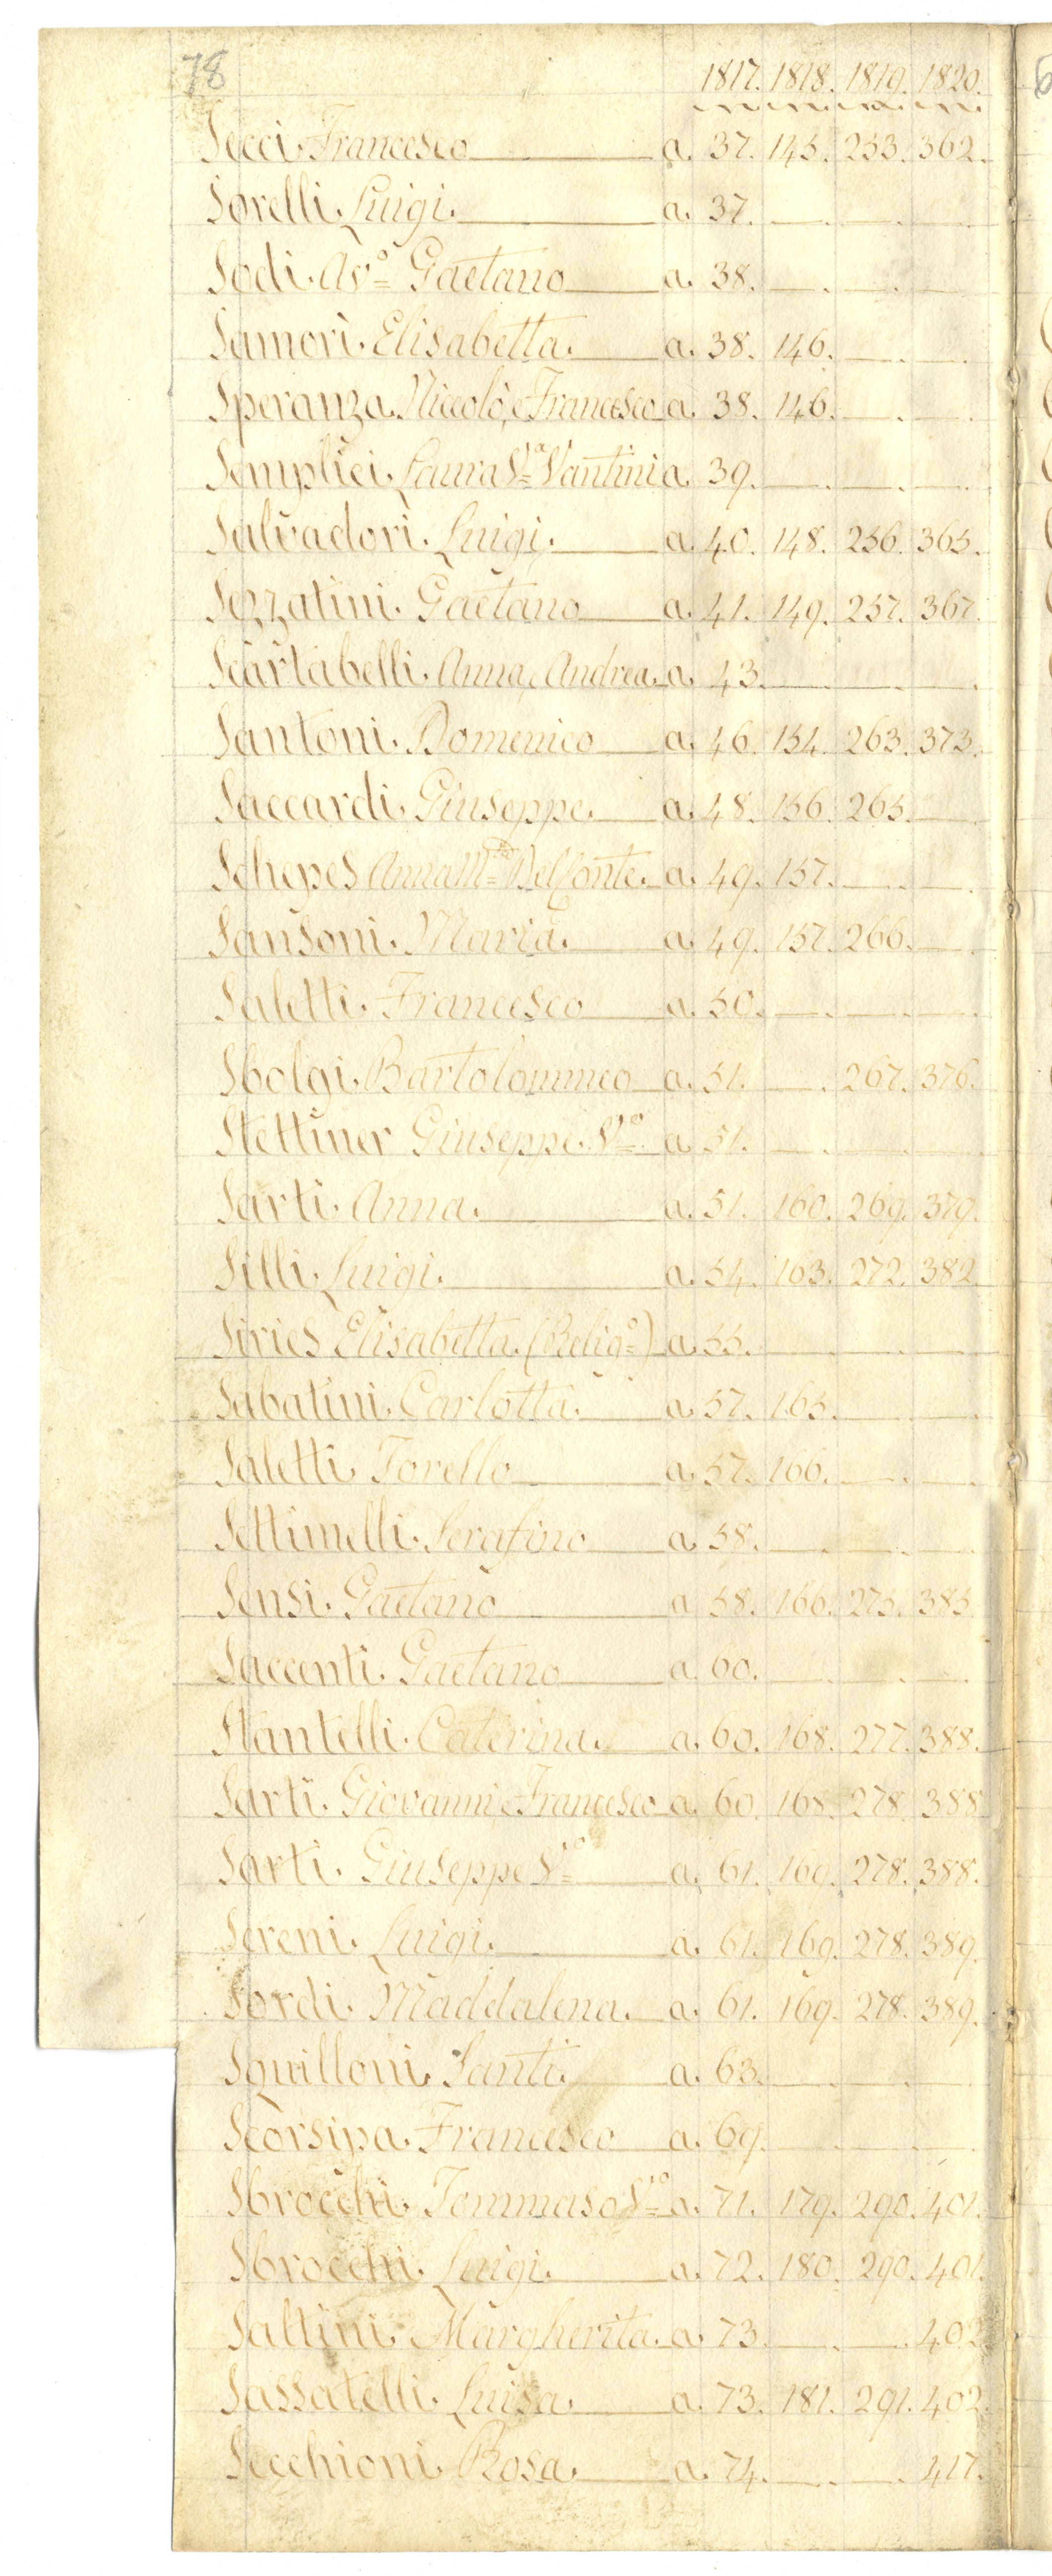 78
1817. 1818. 1819. 1820.
Secci Francesco a. 37. 145. 253. 362.
Sorelli Luigi. a. 37. —. —. —
Sodi. Avo. Gaetano a. 38. —. —. —
Samori. Elisabetta. a. 38. 146. —. —
Speranza. Niccolò, e Francesco a. 38. 146. —. —
Semplici. Laura Va. Vantini a. 39. —. —. —
Salvadori. Luigi. a. 40. 148. 256. 365.
Sezzatini. Gaetano a. 41. 149. 257. 367.
Scartabelli. Anna, e Andrea. a. 43. —. —. —
Santoni. Domenico a. 46. 154. 263. 373.
Saccardi. Giuseppe. a. 48. 156. 265. —
Schepes Anna Ma. Del Conte. a. 49. 157. —. —
Sansoni. Maria. a. 49. 157. 266. —
Saletti. Francesco a. 50. —. —. —
Sbolgi. Bartolommeo a. 51. —. 267. 376.
Stettiner Giuseppe. Vo. a. 51. —. —. —
Sarti. Anna. a. 51. 160. 269. 379.
Silli. Luigi. a. 54. 163. 272. 382.
Siries Elisabetta. (Religa.) a. 55. —. —. —
Sabatini. Carlotta. a. 57. 165. —. —
Saletti Torello a. 57. 166. —. —
Settimelli. Serafino a. 58. —. —. —
Sensi. Gaetano a. 58. 166. 275. 385.
Saccenti. Gaetano a. 60. —. —. —
Stantelli. Caterina. a. 60. 168. 277. 388.
Sarti. Giovanni, e Francesco a. 60. 168. 278. 388.
Sarti. Giuseppe Vo. a. 61. 169. 278. 388.
Sereni. Luigi. a. 61. 169. 278. 389.
Sordi. Maddalena. a. 61. 169. 278. 389.
Squilloni. Santi. a. 63. —. —. —
Scorsipa. Francesco a. 69. —. —. —
Sbrocchi. Tommaso Vo. a. 71. 179. 290. 401.
Sbrocchi. Luigi. a. 72. 180. 290. 401.
Saltini. Margherita. a. 73. —. —. 402.
Sassatelli. Luisa. a. 73. 181. 291. 402.
Secchioni. Rosa. a. 74. —. —. 417.